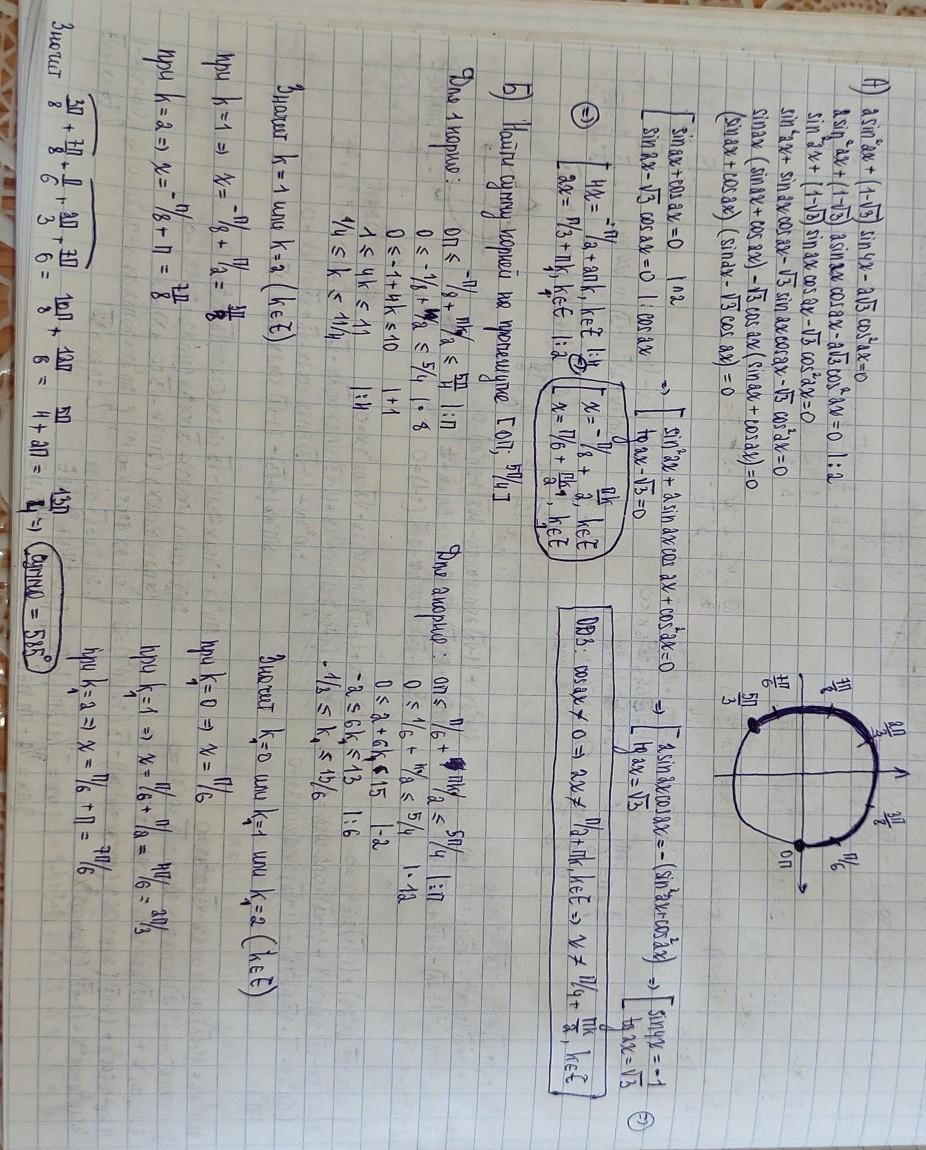 А) 2sin²2x + (1-√3) sin4x - 2√3 cos²2x = 0
2sin²2x + (1-√3) 2sin2x cos2x - 2√3 cos²2x = 0 |:2
sin²2x + (1-√3) sin2x cos2x - √3 cos²2x = 0
sin²2x + sin2x cos2x - √3 sin2x cos2x - √3 cos²2x = 0
sin2x (sin2x + cos2x) - √3 cos2x (sin2x + cos2x) = 0
(sin2x + cos2x) (sin2x - √3 cos2x) = 0
[ sin2x + cos2x = 0 |^2 => [ sin²2x + 2sin2x cos2x + cos²2x = 0 => [ 2sin2x cos2x = -(sin²2x + cos²2x) => [ sin4x = -1
[ sin2x - √3 cos2x = 0 |: cos2x [ tg2x - √3 = 0 [ tg2x = √3 [ tg2x = √3 <=>
<=> [ 4x = -π/2 + 2πk, k∈Z |:4 <=> [ x = -π/8 + πk/2, k∈Z
[ 2x = π/3 + πk₁, k₁∈Z |:2 [ x = π/6 + πk₁/2, k₁∈Z
ОДЗ: cos2x ≠ 0 => 2x ≠ π/2 + πk, k∈Z => x ≠ π/4 + πk/2, k∈Z
2π/3
3π/8
7π/8
π/6
7π/6
0π
5π/3
Б) Найти сумму корней на промежутке [0π; 5π/4]
Для 1 корня: 0π ≤ -π/8 + πk/2 ≤ 5π/4 |:π
0 ≤ -1/8 + k/2 ≤ 5/4 |·8
0 ≤ -1 + 4k ≤ 10 |+1
1 ≤ 4k ≤ 11 |:4
1/4 ≤ k ≤ 11/4
Значит k=1 или k=2 (k∈Z)
при k=1 => x = -π/8 + π/2 = 3π/8
при k=2 => x = -π/8 + π = 7π/8
Для 2 корня: 0π ≤ π/6 + πk₁/2 ≤ 5π/4 |:π
0 ≤ 1/6 + k₁/2 ≤ 5/4 |·12
0 ≤ 2 + 6k₁ ≤ 15 |-2
-2 ≤ 6k₁ ≤ 13 |:6
-1/3 ≤ k₁ ≤ 13/6
Значит k₁=0 или k₁=1 или k₁=2 (k₁∈Z)
при k₁=0 => x = π/6
при k₁=1 => x = π/6 + π/2 = 4π/6 = 2π/3
при k₁=2 => x = π/6 + π = 7π/6
Значит 3π/8 + 7π/8 + π/6 + 2π/3 + 7π/6 = 10π/8 + 12π/6 = 5π/4 + 2π = 13π/4 => сумма = 585°